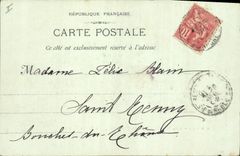 I
RÉPUBLIQUE FRANÇAISE
CARTE POSTALE
Ce côté est exclusivement réservé à l'adresse
Madame Félix Adam
Saint Remy
Bouches-du-Rhône